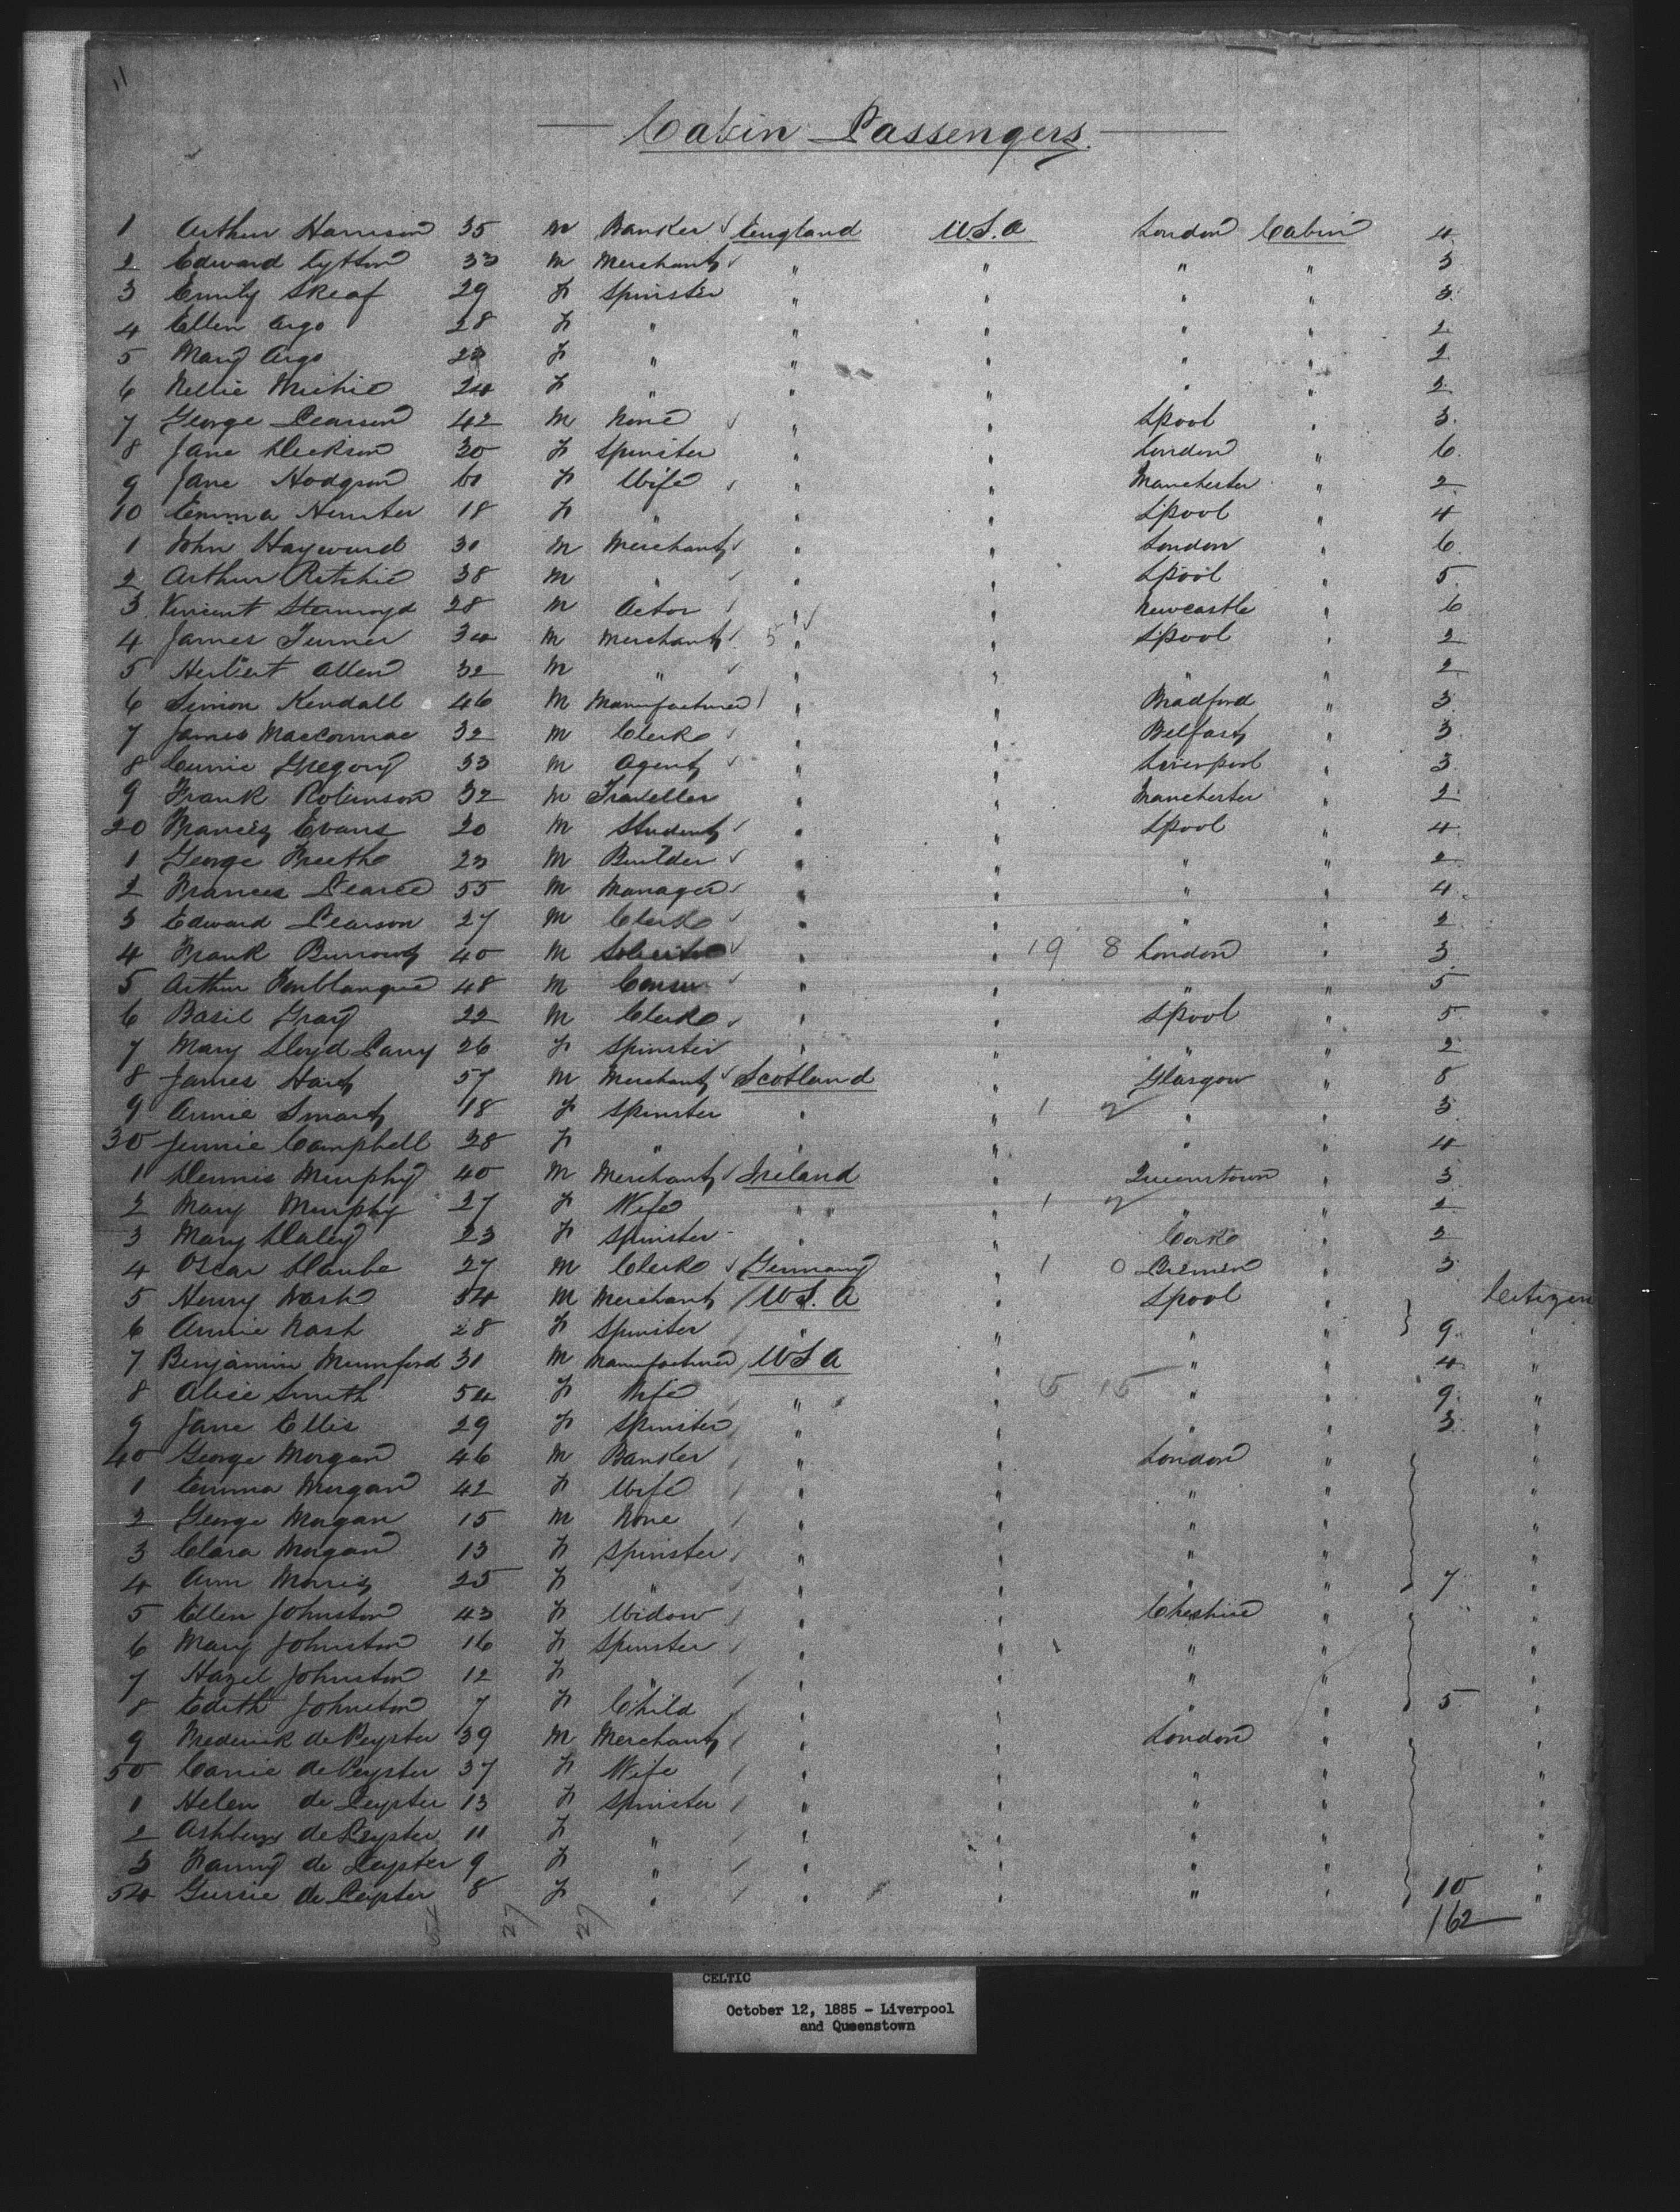 11
Cabin Passengers.
1 Arthur Harrison 35 m Banker England U.S.A London Cabin 4
2 Edward Lytton 33 m Merchant " " " " 3
3 Emily Skeaf 29 f Spinster " " " " 3
4 Ellen Argo 28 f " " " " " 2
5 Mary Argo f " " " " " 2
6 Nellie Michie 24 f " " " " " 2
7 George Pearson 42 m None " " Lpool " 3
8 Jane Dickson 30 f Spinster " " London " 6
9 Jane Hodgson f Wife " " Manchester " 2
10 Emma Hunter 18 f " " " Lpool " 4
1 John Hayward 31 m Merchant " " London " 6
2 Arthur Ritchie 38 m " " " Lpool " 5
3 Vincent Sternroyd 28 m Actor " " Newcastle " 6
4 James Turner 34 m Merchant 5 " " Lpool " 2
5 Herbert Allen 32 m " " " " " 2
6 Simon Kendall 46 m Manufacturer " " Bradford " 3
7 James MacCormac 32 m Clerk " " Belfast " 3
8 Gregory 33 m Agent " " Liverpool " 3
9 Frank Robinson 32 m Traveller " " Manchester " 2
20 Francis Evans 20 m Student " " Lpool " 4
1 George 23 m Builder " " " " 2
2 Frances Pearce 55 m Manager " " " " 4
3 Edward Pearson 27 m Clerk " " " " 2
4 Frank Burrows 40 m Solicitor " " 19 8 London " 3
5 Arthur Fonblanque 48 m " " " " 5
6 Basil Gray 22 m Clerk " " Lpool " 5
7 Mary Lloyd Parry 26 f Spinster " " " " 2
8 James Hart 57 m Merchant Scotland " Glasgow " 8
9 Annie Smart 18 f Spinster " " 1 2 " " 3
30 Jennie Campbell 28 f " " " " " 4
1 Dennis Murphy 40 m Merchant Ireland " Queenstown " 3
2 Mary Murphy 27 f Wife " " " 1 2 " " 2
3 Mary Daley 23 f Spinster " " Cork " 2
4 Oscar Daube 27 m Clerk Germany " 1 0 Bremen " 3
5 Henry Nash 54 m Merchant U.S.A " Lpool " Citizen
6 Annie Nash 28 f Spinster " " " " 9 "
7 Benjamin Mumford 31 m Manufacturer U S A " " " 4 "
8 Alice Smith 54 f Wife " " 6 15 " " 9 "
9 Jane Ellis 29 f Spinster " " " " 3 "
40 George Morgan 46 m Banker " " London " "
1 Emma Morgan 42 f Wife " " " " "
2 George Morgan 15 m None " " " " "
3 Clara Morgan 13 f Spinster " " " " "
4 Ann Morris 25 f " " " " " 7 "
5 Ellen Johnston 43 f Widow " " Cheshire " "
6 Mary Johnston 16 f Spinster " " " " "
7 Hazel Johnston 12 f " " " " " "
8 Edith Johnston 7 f Child " " " " 5 "
9 Frederick de Peyster 39 m Merchant " " London " "
50 Carrie de Peyster 37 f Wife " " " " "
1 Helen de Peyster 13 f Spinster " " " " "
2 de Peyster 11 f " " " " " "
3 Fanny de Peyster 9 f " " " " " "
54 Gussie de Peyster 8 f " " " " " 10 "
162
27 27
CELTIC
October 12, 1885 - Liverpool
and Queenstown